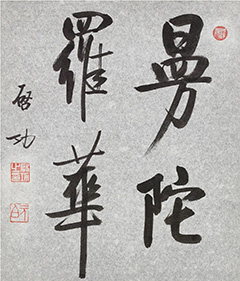 曼陀
羅華
啓功